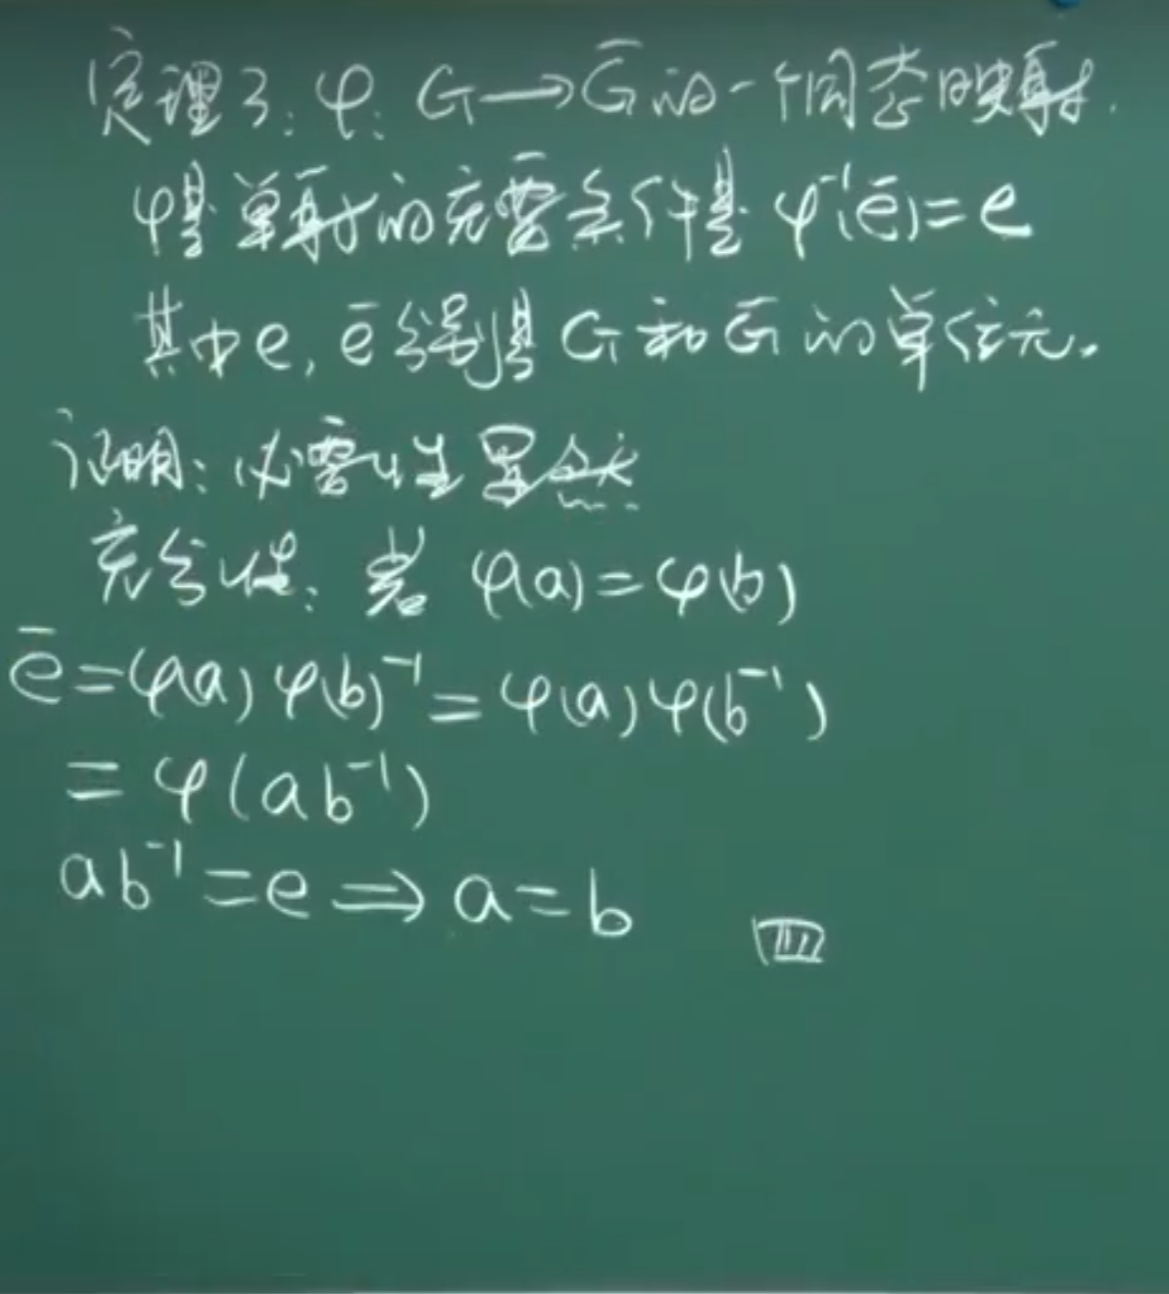 定理3: φ: G→G̅ 的一个同态映射.
φ是单射的充要条件是 φ⁻¹(e̅)=e
其中e, e̅分别是 G 和 G̅ 的单位元.
证明: 必要性显然
充分性: 若 φ(a)=φ(b)
e̅=φ(a)φ(b)⁻¹=φ(a)φ(b⁻¹)
=φ(ab⁻¹)
ab⁻¹=e⇒a=b